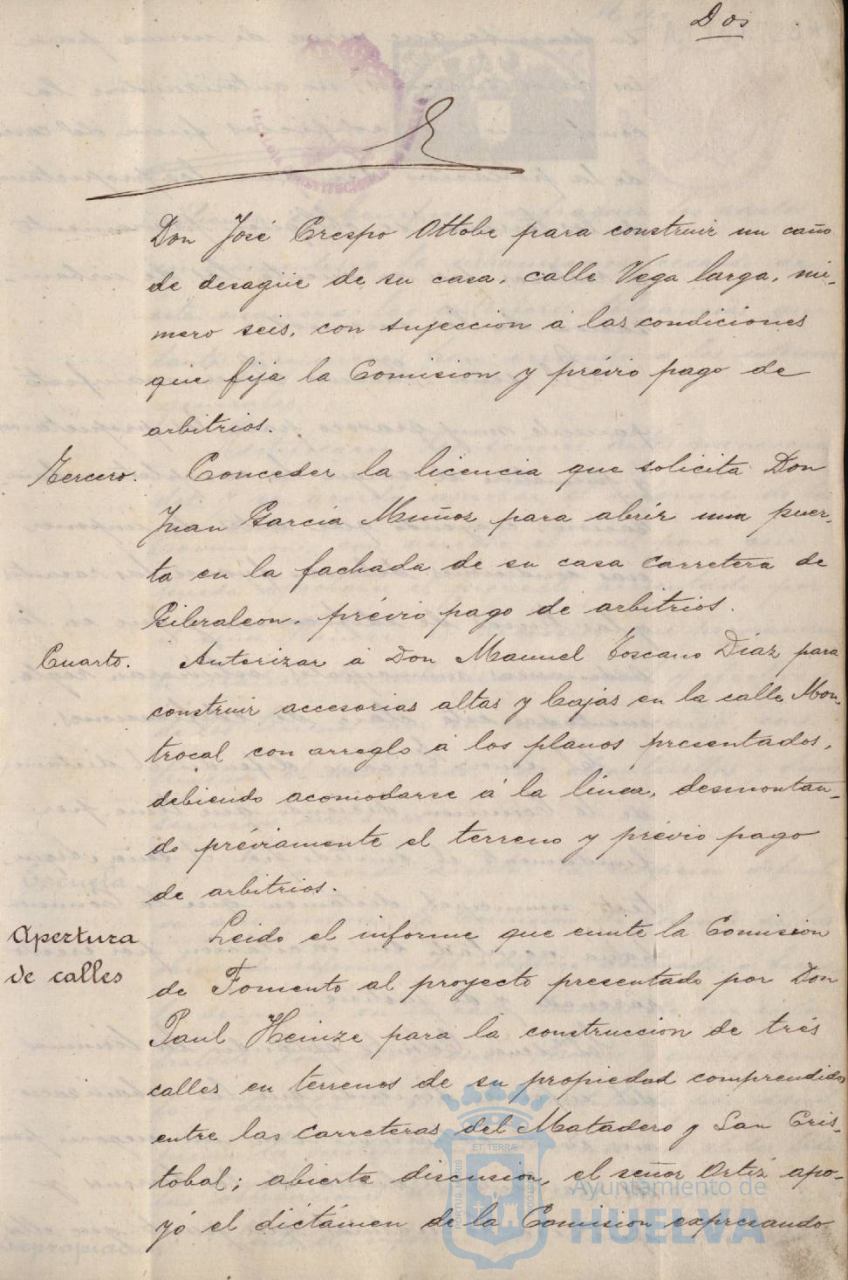 Dos
Don José Crespo Ottobe para construir un caño
de desagüe de su casa, calle Vega larga, nú-
mero seis, con sujeccion á las condiciones
que fija la Comision y prévio pago de
arbitrios.
Tercero. Conceder la licencia que solicita Don
Juan Garcia Muñoz para abrir una puer-
ta en la fachada de su casa carretera de
Gibraleon, prévio pago de arbitrios.
Cuarto. Autorizar á Don Manuel Toscano Díaz para
construir accesorias altas y bajas en la calle Mon-
trocal con arreglo á los planos presentados,
debiendo acomodarse á la línea, desmontan-
do préviamente el terreno y prévio pago
de arbitrios.
Apertura de calles
Leido el informe que emite la Comision
de Fomento al proyecto presentado por Don
Paul Heinze para la construccion de trés
calles en terrenos de su propiedad comprendidos
entre las carreteras del Matadero y San Cris-
tobal; abierta discusion, el señor Ortiz apo-
yó el dictámen de la Comision expresando
Ayuntamiento de
HUELVA